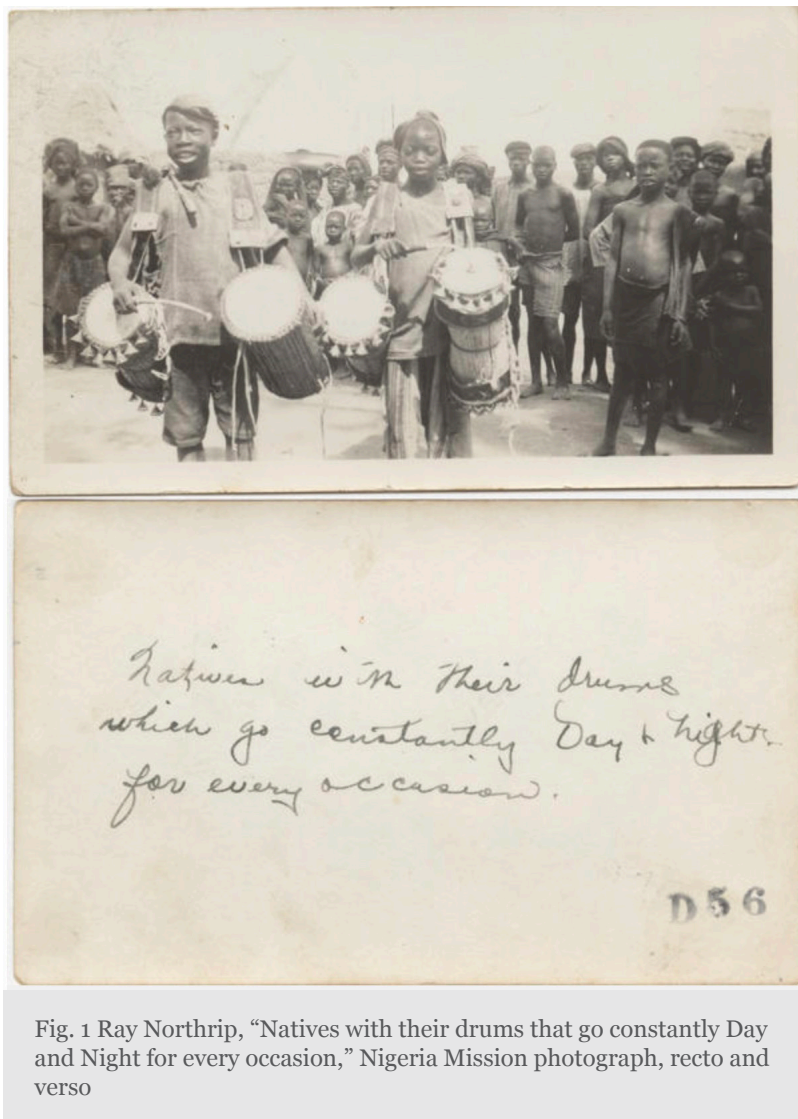 Natives with their drums
which go constantly Day & Night
for every occasion.
D56
Fig. 1 Ray Northrip, “Natives with their drums that go constantly Day
and Night for every occasion,” Nigeria Mission photograph, recto and
verso